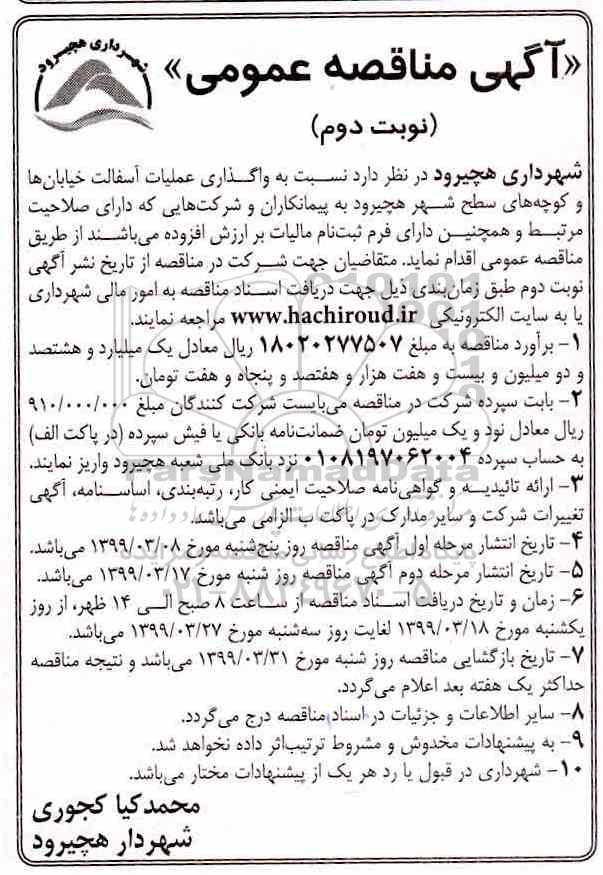 شهرداری هچیرود
«آگهی مناقصه عمومی»
(نوبت دوم)
شهرداری هچیرود در نظر دارد نسبت به واگذاری عملیات آسفالت خیابان‌ها
و کوچه‌های سطح شهر هچیرود به پیمانکاران و شرکت‌هایی که دارای صلاحیت
مرتبط و همچنین دارای فرم ثبت‌نام مالیات بر ارزش افزوده می‌باشند از طریق
مناقصه عمومی اقدام نماید. متقاضیان جهت شرکت در مناقصه از تاریخ نشر آگهی
نوبت دوم طبق زمان‌بندی ذیل جهت دریافت اسناد مناقصه به امور مالی شهرداری
یا به سایت الکترونیکی www.hachiroud.ir مراجعه نمایند.
۱- برآورد مناقصه به مبلغ ۱۸۰۲۰۲۷۷۵۰۷ ریال معادل یک میلیارد و هشتصد
و دو میلیون و بیست و هفت هزار و هفتصد و پنجاه و هفت تومان.
۲- بابت سپرده شرکت در مناقصه می‌بایست شرکت کنندگان مبلغ ۹۱۰/۰۰۰/۰۰۰
ریال معادل نود و یک میلیون تومان ضمانت‌نامه بانکی یا فیش سپرده (در پاکت الف)
به حساب سپرده ۰۱۰۸۱۹۷۰۶۲۰۰۴ نزد بانک ملی شعبه هچیرود واریز نمایند.
۳- ارائه تائیدیه و گواهی‌نامه صلاحیت ایمنی کار، رتبه‌بندی، اساسنامه، آگهی
تغییرات شرکت و سایر مدارک در پاکت ب الزامی می‌باشد.
۴- تاریخ انتشار مرحله اول آگهی مناقصه روز پنج‌شنبه مورخ ۱۳۹۹/۰۳/۰۸ می‌باشد.
۵- تاریخ انتشار مرحله دوم آگهی مناقصه روز شنبه مورخ ۱۳۹۹/۰۳/۱۷ می‌باشد.
۶- زمان و تاریخ دریافت اسناد مناقصه از ساعت ۸ صبح الی ۱۴ ظهر، از روز
یکشنبه مورخ ۱۳۹۹/۰۳/۱۸ لغایت روز سه‌شنبه مورخ ۱۳۹۹/۰۳/۲۷ می‌باشد.
۷- تاریخ بازگشایی مناقصه روز شنبه مورخ ۱۳۹۹/۰۳/۳۱ می‌باشد و نتیجه مناقصه
حداکثر یک هفته بعد اعلام می‌گردد.
۸- سایر اطلاعات و جزئیات در اسناد مناقصه درج می‌گردد.
۹- به پیشنهادات مخدوش و مشروط ترتیب‌اثر داده نخواهد شد.
۱۰- شهرداری در قبول یا رد هر یک از پیشنهادات مختار می‌باشد.
محمدکیا کجوری
شهردار هچیرود
ParsNamadData
۰۲۱-۸۸۳۴۹۶۷۰-۵